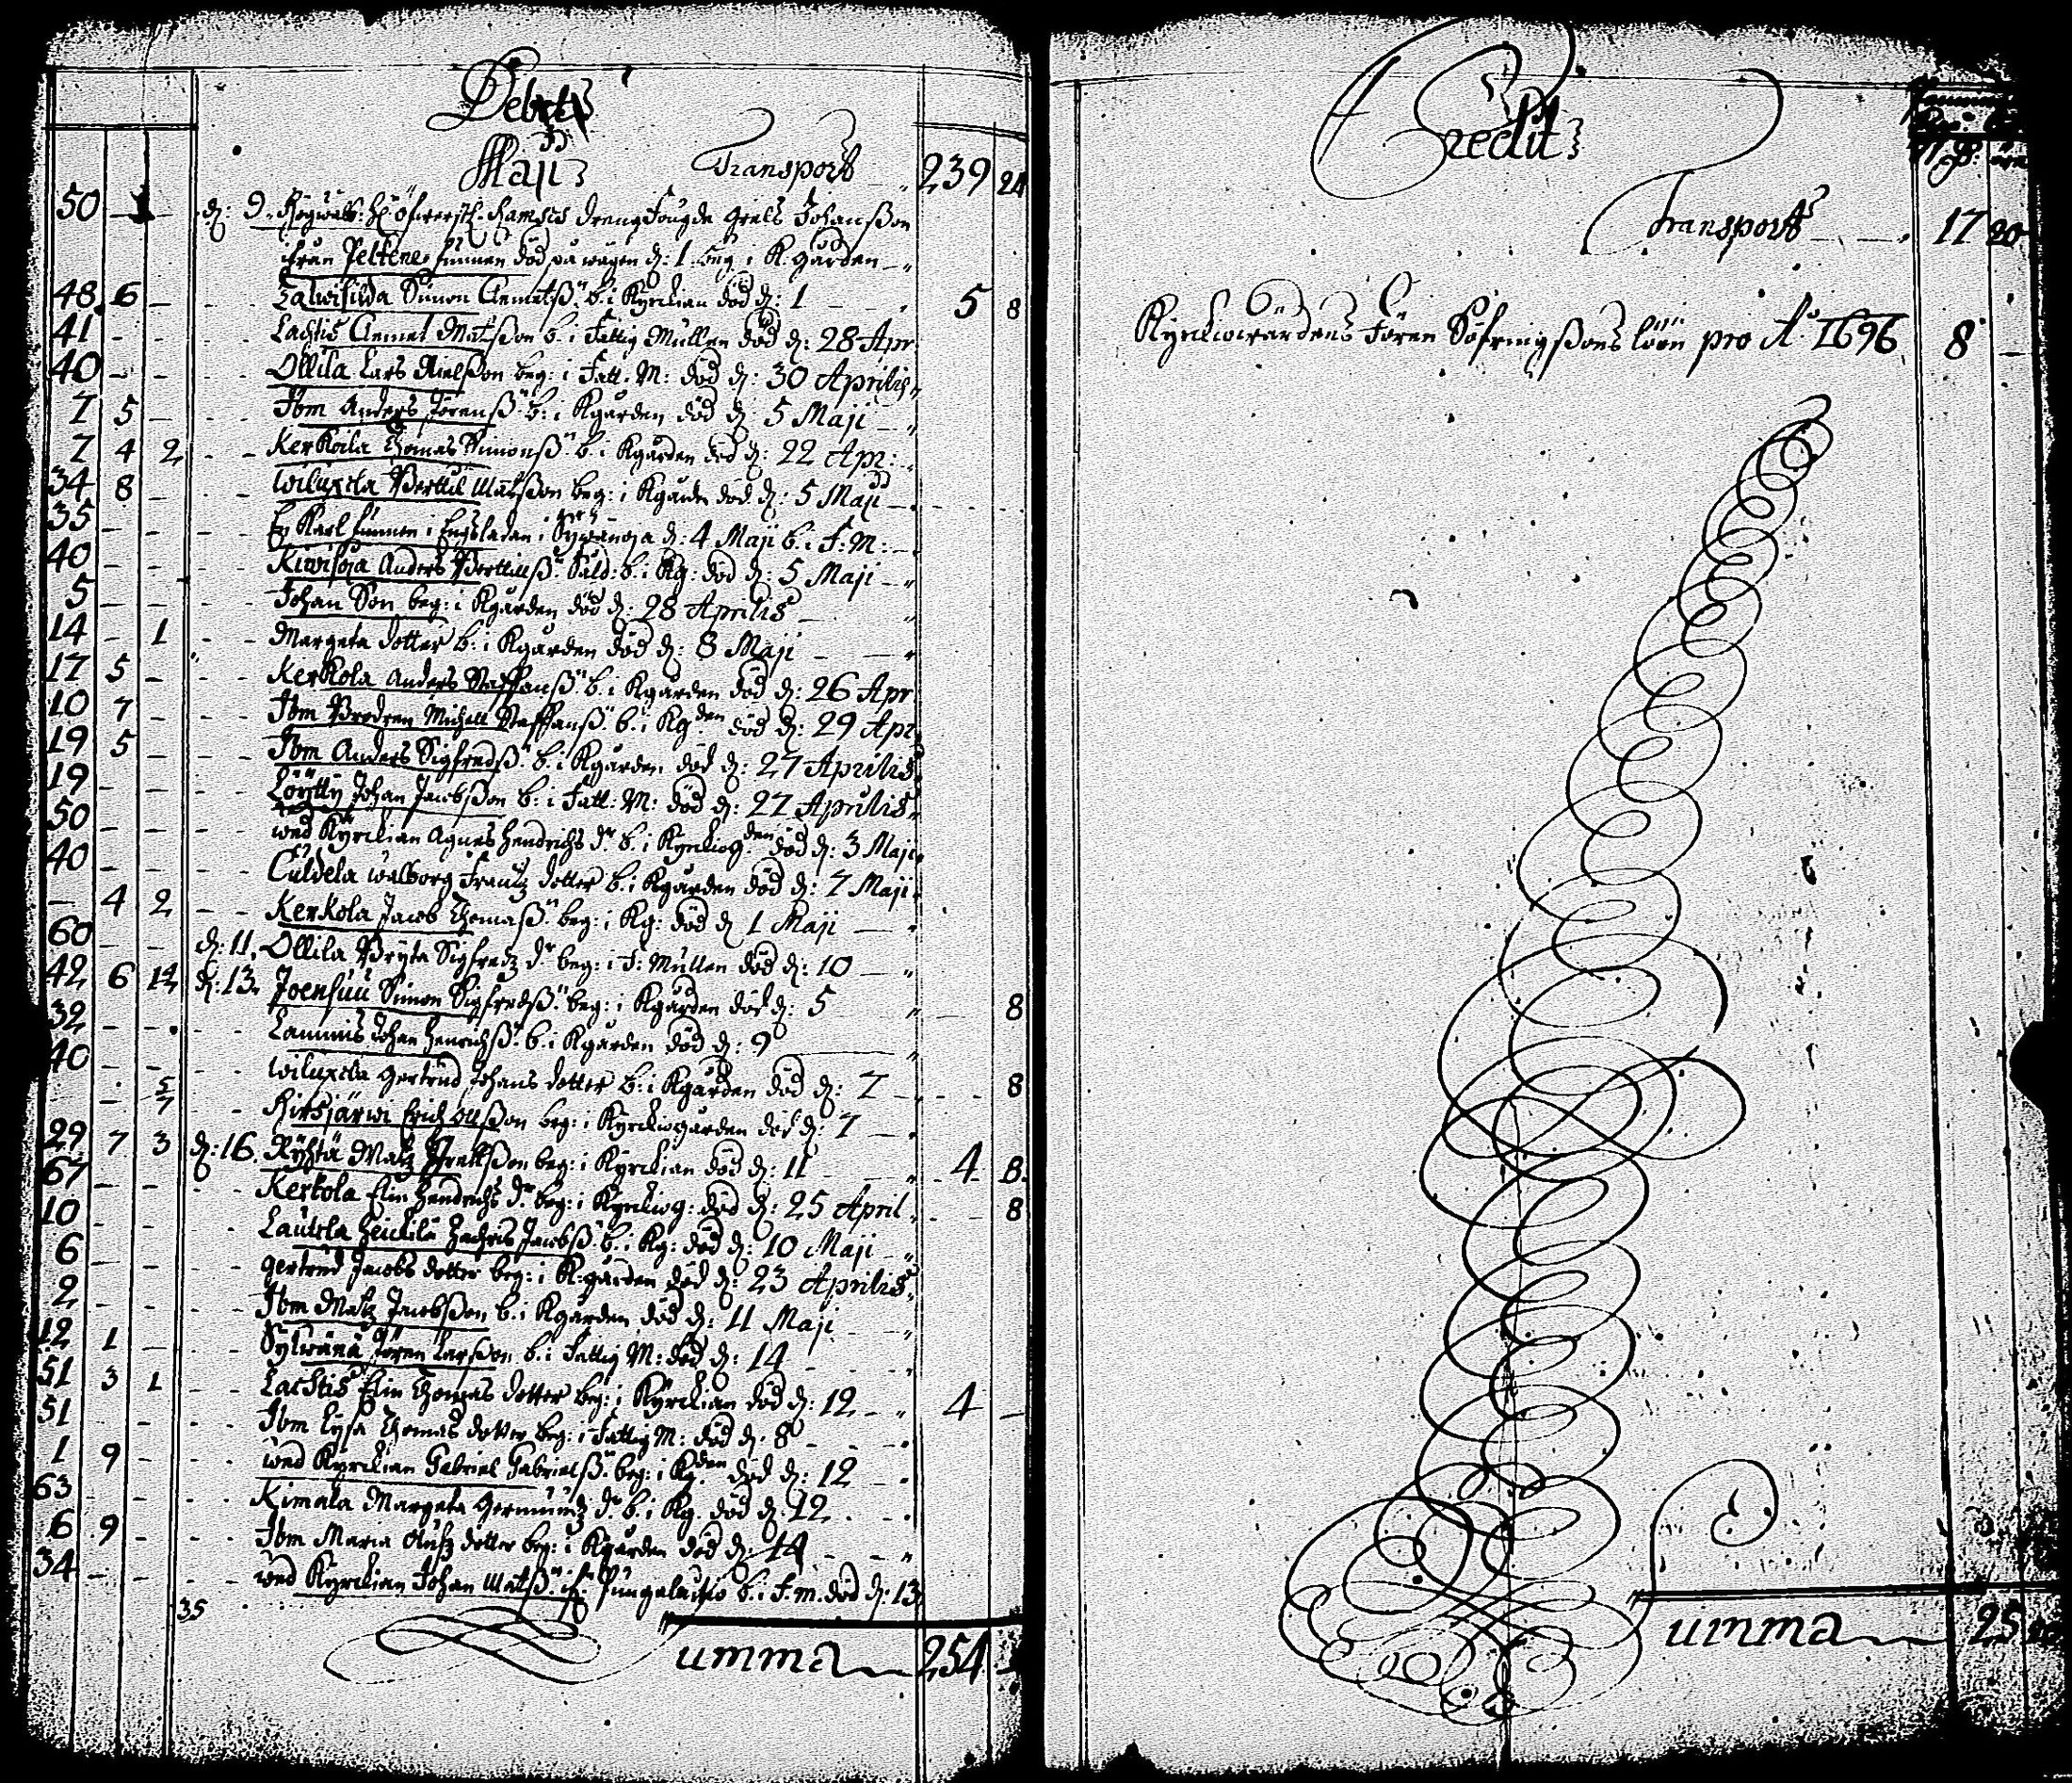 Debet
Maji Transport 239 24
50 d: 9. Drengfougde Grels Johanßon
från funnen död på wägen d: 1 beg: i K:gården
48 6 Simon Clemetß: b: i Kyrckian död d: 1 5 8
41 Lachtis Clemet Matßon b: i Fattig Mullen död d: 28 Apr
40 Ollila Lars beg: i Fatt: M: död d: 30 Aprilis
7 5 Ibm Anders Jörenß: b: i Kgården död d: 5 Maji
7 4 2 Kerkola Thomas Simonß: b: i Kgården död d: 22 Apr:
34 8 Wiluxela Berttil Matßon beg: i Kgården död d: 5 Maji
35 En Karl funnen i Engsladan i d: 4 Maji b: i F: M:
40 Kiwisoja Anders Berttillß: Såld: b: i Kg: död d: 5 Maji
5 Johan Son beg: i Kgården död d: 28 Aprilis
14 1 Margeta dotter b: i Kgården död d: 8 Maji
17 5 Kerkola Anders Staffanß: b: i Kgården död d: 26 Apr
10 7 Ibm Brodren Michell Staffanß: b: i Kgden död d: 29 Apr
19 5 Ibm Anders Sigfredß: b: i Kgården död d: 27 Aprilis
19 Löytty Johan Jacobßon b: i Fatt: M: död d: 27 Aprilis
50 wed Kyrckian Agnes Hendrichs dr b: i Kyrckiogden död d: 3 Maji
40 Culdela Walborg Frantz dotter b: i Kgården död d: 7 Maji
4 2 Kerkola Jacob Thomaß: beg: i Kg: död d 1 Maji
60 d: 11. Ollila Bryta Sigfredz dr beg: i F: Mullen död d: 10
42 6 14 d: 13. Joensuu Simon Sigfredß: beg: i Kgården död d: 5 8
32 Lammis Johan Henrichß: b: i Kgården död d: 9
40 Wiluxela Gertrud Johans dotter b: i Kgården död d: 7 8
Hirsjärwi Erich Ollßon beg: i Kyrckiogården död d: 7
29 7 3 d: 16. Matz beg: i Kyrckian död d: 11 4 8
67 Kerkola Elin Hendrichs dr beg: i Kyrckiog: död d: 25 April 8
10 Lautela Jacobß: b: i Kg: död d: 10 Maji
6 Gertrud Jacobs dotter beg: i K:gården död d: 23 Aprilis
2 Ibm Matz Jacobßon b: i Kgården död d: 11 Maji
12 1 Sylwänä Jören Larßon b: i Fattig M: död d: 14
51 3 1 Lachtis Elin Thomas dotter beg: i Kyrckian död d: 12 4
51 Ibm Lysa Thomas dotter beg: i Fattig M: död d: 8
1 9 wed Kyrckian Gabriel Gabrielß: beg: i Kgden död d: 12
63 Kimala Margeta Germundz dr b: i Kg. död d: 12
6 9 Ibm Maria dotter beg: i Kgården död d: 14
34 wed Kyrckian Johan Matß: b: i F: m. död d: 13
35
Summa 254
Credit
Transport 17 20
Kyrckiowärdens Jören Söfringßons löön pro Ao 1696 8
Summa 25